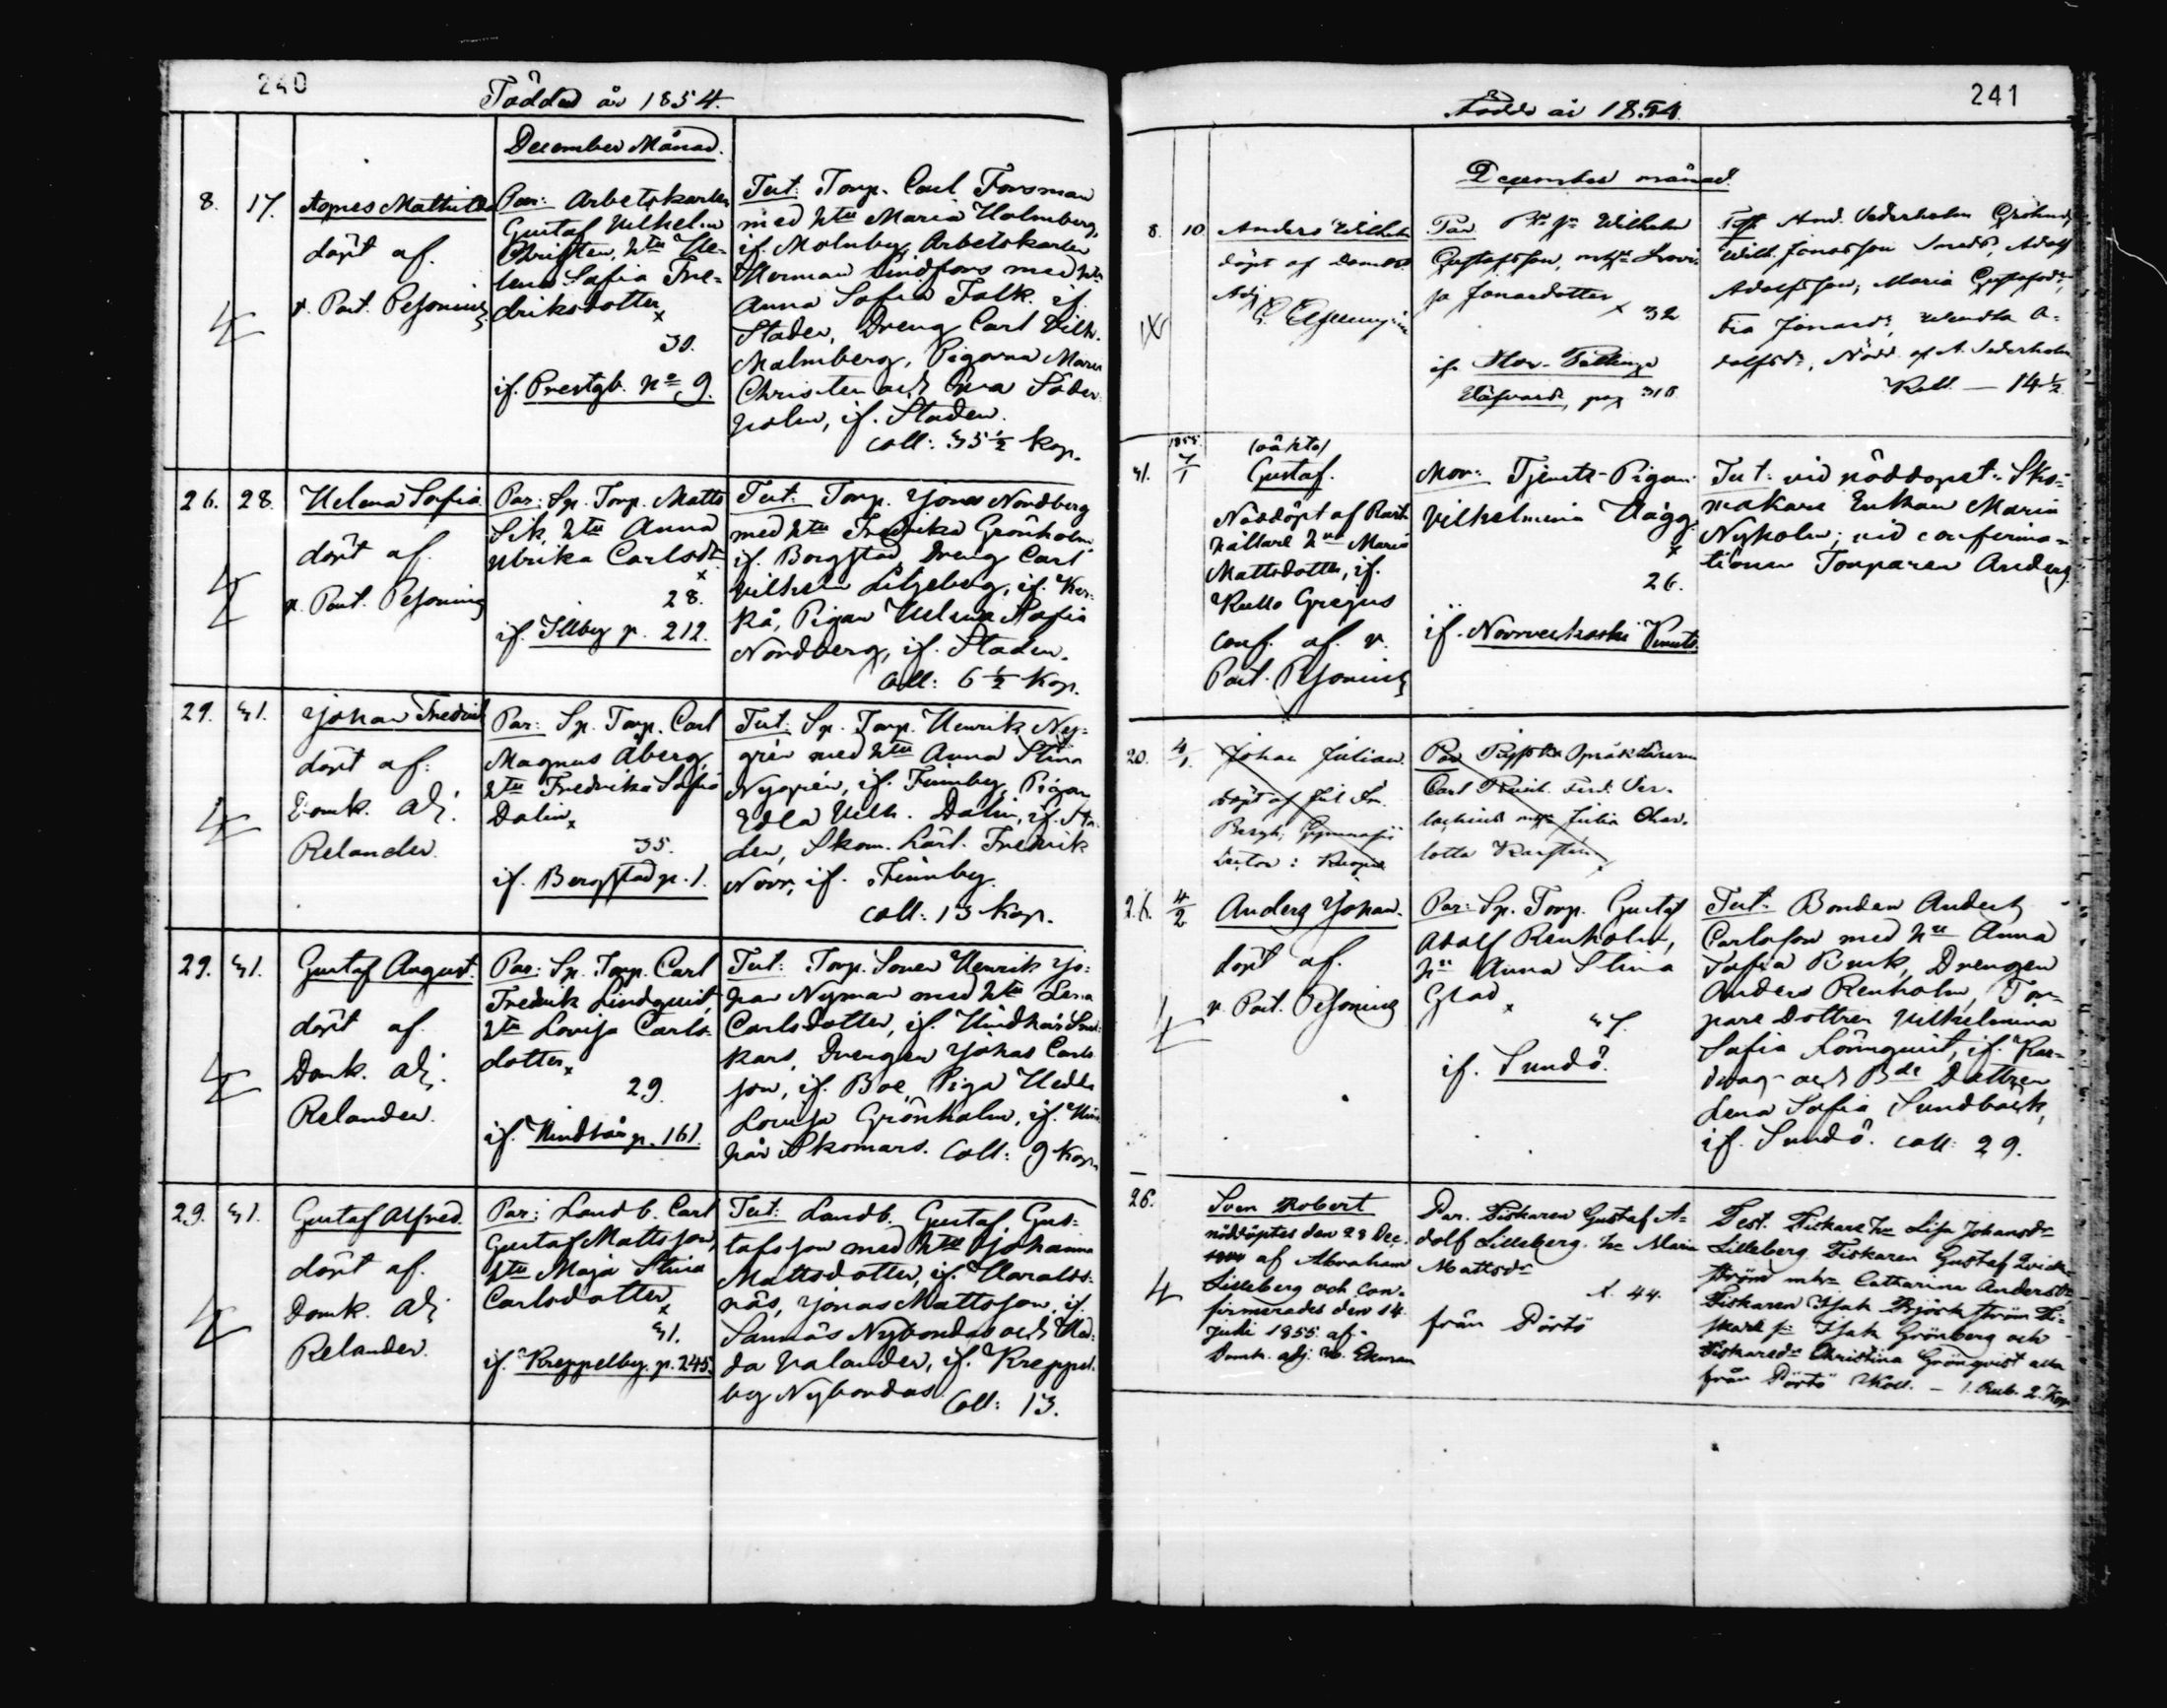 240
Födde år 1854.
December Månad.
8. 17. Agnes Mathilda
döpt af
v. Past. Pesonius
Par: Arbetskarlen
Gustaf Vilhelm
Christen, h:tu He-
lena Sofia Fre-
driksdotter x
30.
if. Prestgb. N:o 9.
Test: Torp. Carl Forsman
med h:tu Maria Holmberg,
if. Molnby, Arbetskarlen
Herman Lindfors med h:tu
Anna Sofia Falk, if.
Staden, Dreng Carl Vilh.
Malmberg, Pigorna Maria
Christen och Eva Söder-
holm, if. Staden.
Coll: 35 ½ kop.
26. 28. Helena Sofia
döpt af
v. Past. Pesonius
Par: Sp. Torp. Matts
Sik, h:tu Anna
Ulrika Carlsdr
x
28.
if. Illby p. 212.
Test: Torp. Jonas Nordberg
med h:tu Fredrika Grönholm,
if. Borgstad, Dreng Carl
Vilhelm Liljeberg, if. Ker-
kå, Pigan Helena Sofia
Nordberg, if. Staden.
Coll: 6 ½ kop.
29. 31. Johan Fredrik
döpt af:
Domk. Adj.
Relander.
Par: Sp. Torp. Carl
Magnus Åberg,
h:tu Fredrika Sofia
Dalin x
35.
if. Borgstad p. 1.
Test: Sp. Torp. Henrik Ny-
grén med h:tu Anna Stina
Nygrén, if. Finnby, Pigan
Edla Vilh. Dalin, if. Sta-
den, Skom. Lärl. Fredrik
Norr, if. Finnby.
Coll: 13 kop.
29. 31. Gustaf August.
döpt af
Domk. Adj.
Relander.
Par: Sp. Torp. Carl
Fredrik Lindquist,
h:tu Lovisa Carls-
dotter x
29.
if. Hindhår p. 161.
Test: Torp. Sonen Henrik Jo-
han Nyman med h:tu Lena
Carlsdotter, if. Hindhår Sme-
kars, Drengen Johas Carls-
son, if. Boe, Piga Hedda
Lovisa Grönholm, if. Hind-
hår Skomars. Coll: 9 kop.
29. 31. Gustaf Alfred.
döpt af
Domk. Adj.
Relander.
Par: Landb. Carl
Gustaf Mattsson,
h:tu Maja Stina
Carlsdotter x
31.
if. Kreppelby p. 245.
Test: Landb. Gustaf Gus-
tafsson med h:tu Johanna
Mattsdotter, if. Haralds-
näs, Jonas Mattsson, if.
Sannäs Nybondas och Hed-
da Valander, if. Kreppel-
by Nybondas. Coll: 13.
241
Födde år 1854.
December månad.
8. 10 Anders Wilhelm
döpt af Domk.
Adj.
Par Wilhelm
Gustafsson, Lovi-
sa Jonasdotter
x 32
if.
pag 310
Test And. Sederholm
Wilh. Jonasson Adolf
Adolfsson, Maria Gustafsdr,
Fia Jonasdr, Wendla A-
dolfsdr, Nödd. af A. Sederholm
Koll. — 14 ½
31. 1855. 7/1 (oäkta)
Gustaf.
Nöddöpt af Rätt.
hållare h:ru Maria
Mattsdotter, if.
Kullo Gregus
conf. af v.
Past. Pesonius
Mor: Tjenste-Pigan
Vilhelmina Hägg
x
26.
if. Norrveckoski
Test: vid nöddopet: Sko-
makare Enkan Maria
Nyholm; vid confirma-
tionen Torparen Anders
20. 4/1 Johan Julian
döpt af Jul. Im.
Bergh, Gymnasii
Lector: Kuopio
Par Ryska Språkläraren
Carl Ferd. Ver-
Julia Char-
lotta Karsten
26. 4/2 Anders Johan.
döpt af.
v. Past. Pesonius
Par: Sp. Torp. Gustaf
Adolf Renholm,
h:ru Anna Stina
Glad x
37.
if. Sundö.
Test: Bonden Anders
Carlsson med h:ru Anna
Sofia Buck, Drengen
Anders Renholm, Tor-
pare Dottren Vilhelmina
Sofia Lönnquist, if. Kar-
drag och B:de Dottren
Lena Sofia Sundbäck,
if. Sundö. Coll: 29.
26. Sven Robert
nöddöptes den 28 Dec.
af Abraham
Lilleberg och con-
firmerades den 14
Juli 1855 af
Domk. adj. Ekman
Par. Fiskaren Gustaf A-
dolf Lilleberg, h:u Maria
Mattsdr
x. 44.
från Pörtö
Test. Fiskare h:u Lisa Johansdr
Lilleberg. Fiskaren Gustaf Qvick-
ström m h:u Catharina Andersdr
Fiskaren Isak Björkström Fi-
skare s: Isak Grönberg och
Fiskaredr Christina Grönqvist alla
från Pörtö Koll. — 1. Rub. 2. Kop